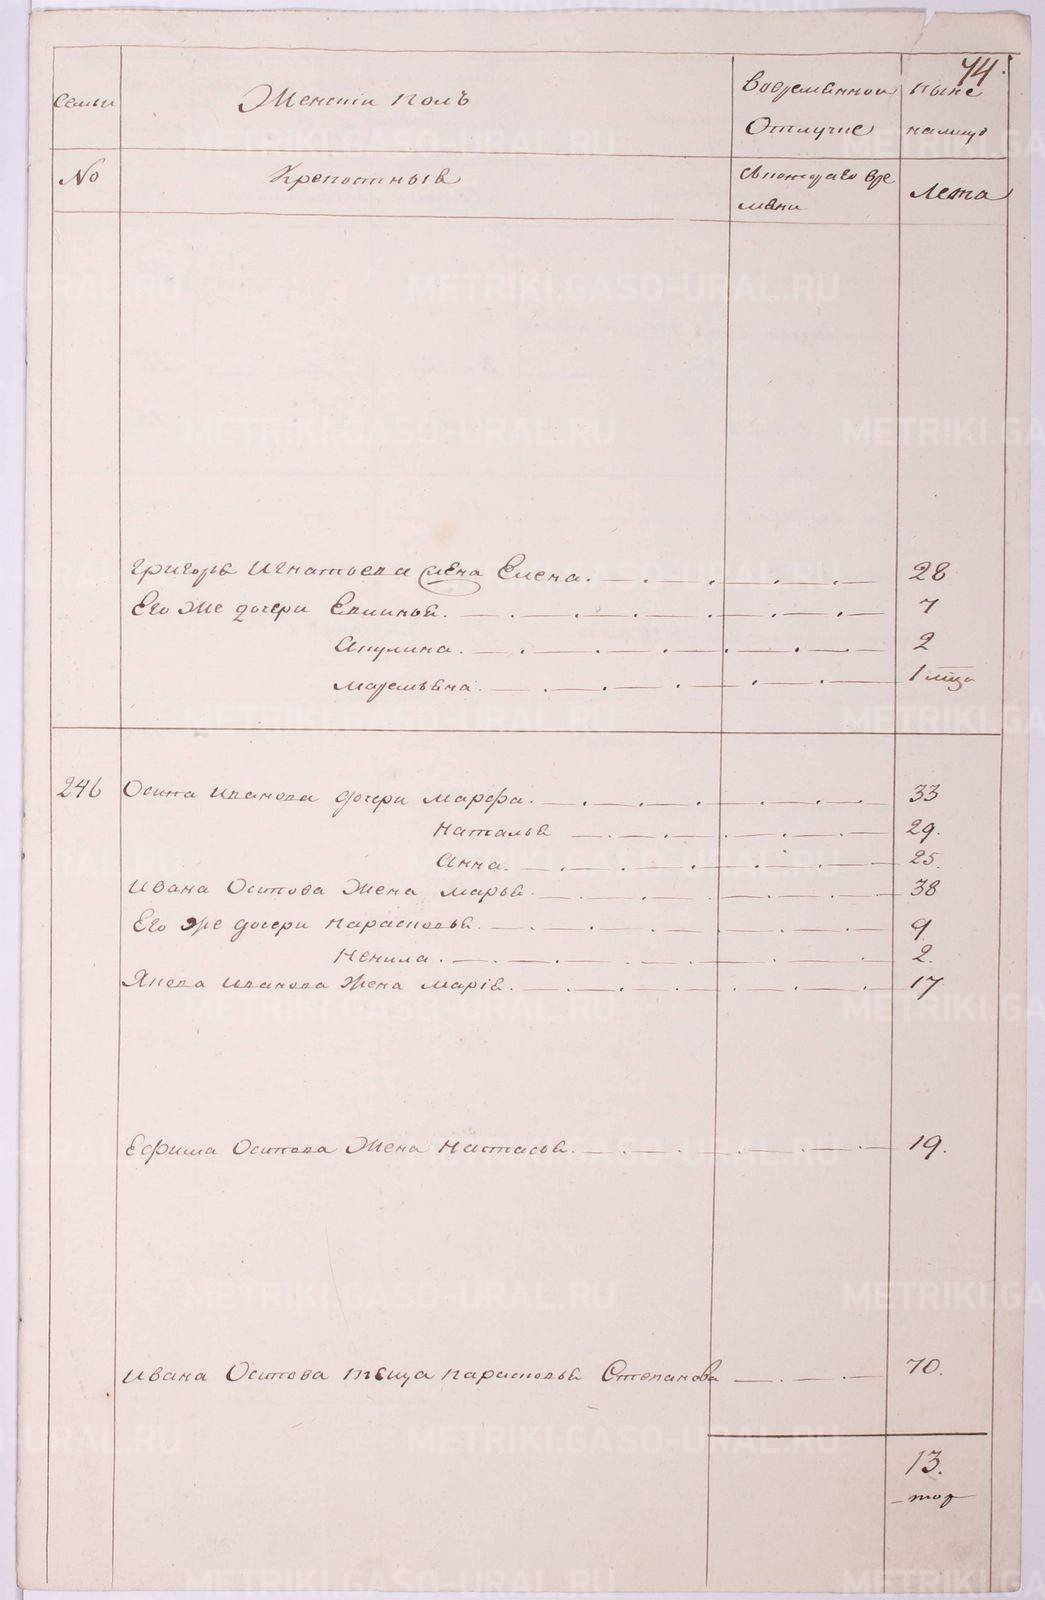 74.
Семьи Женскiй полъ Во временной ныне
Отлучке налицо
№ Крепостныя Съ которого вре Лета
мѣни
Григорья Игнатьева жена Елена. 28
Его же дочери
Акулина. 2
1 мѣся
246 Осипа Иванова дочери Марфа. 33
Наталья 29.
Анна. 25.
Ивана Осипова жена Марья. 38
Его же дочери Парасковья. 9
Ненила. 2.
Якова Иванова жена Марiя. 17
Ефима Осипова жена Настасья. 19.
Ивана Осипова теща Парасковья Степанова 70.
13.
METRIKI.GASO-URAL.RU